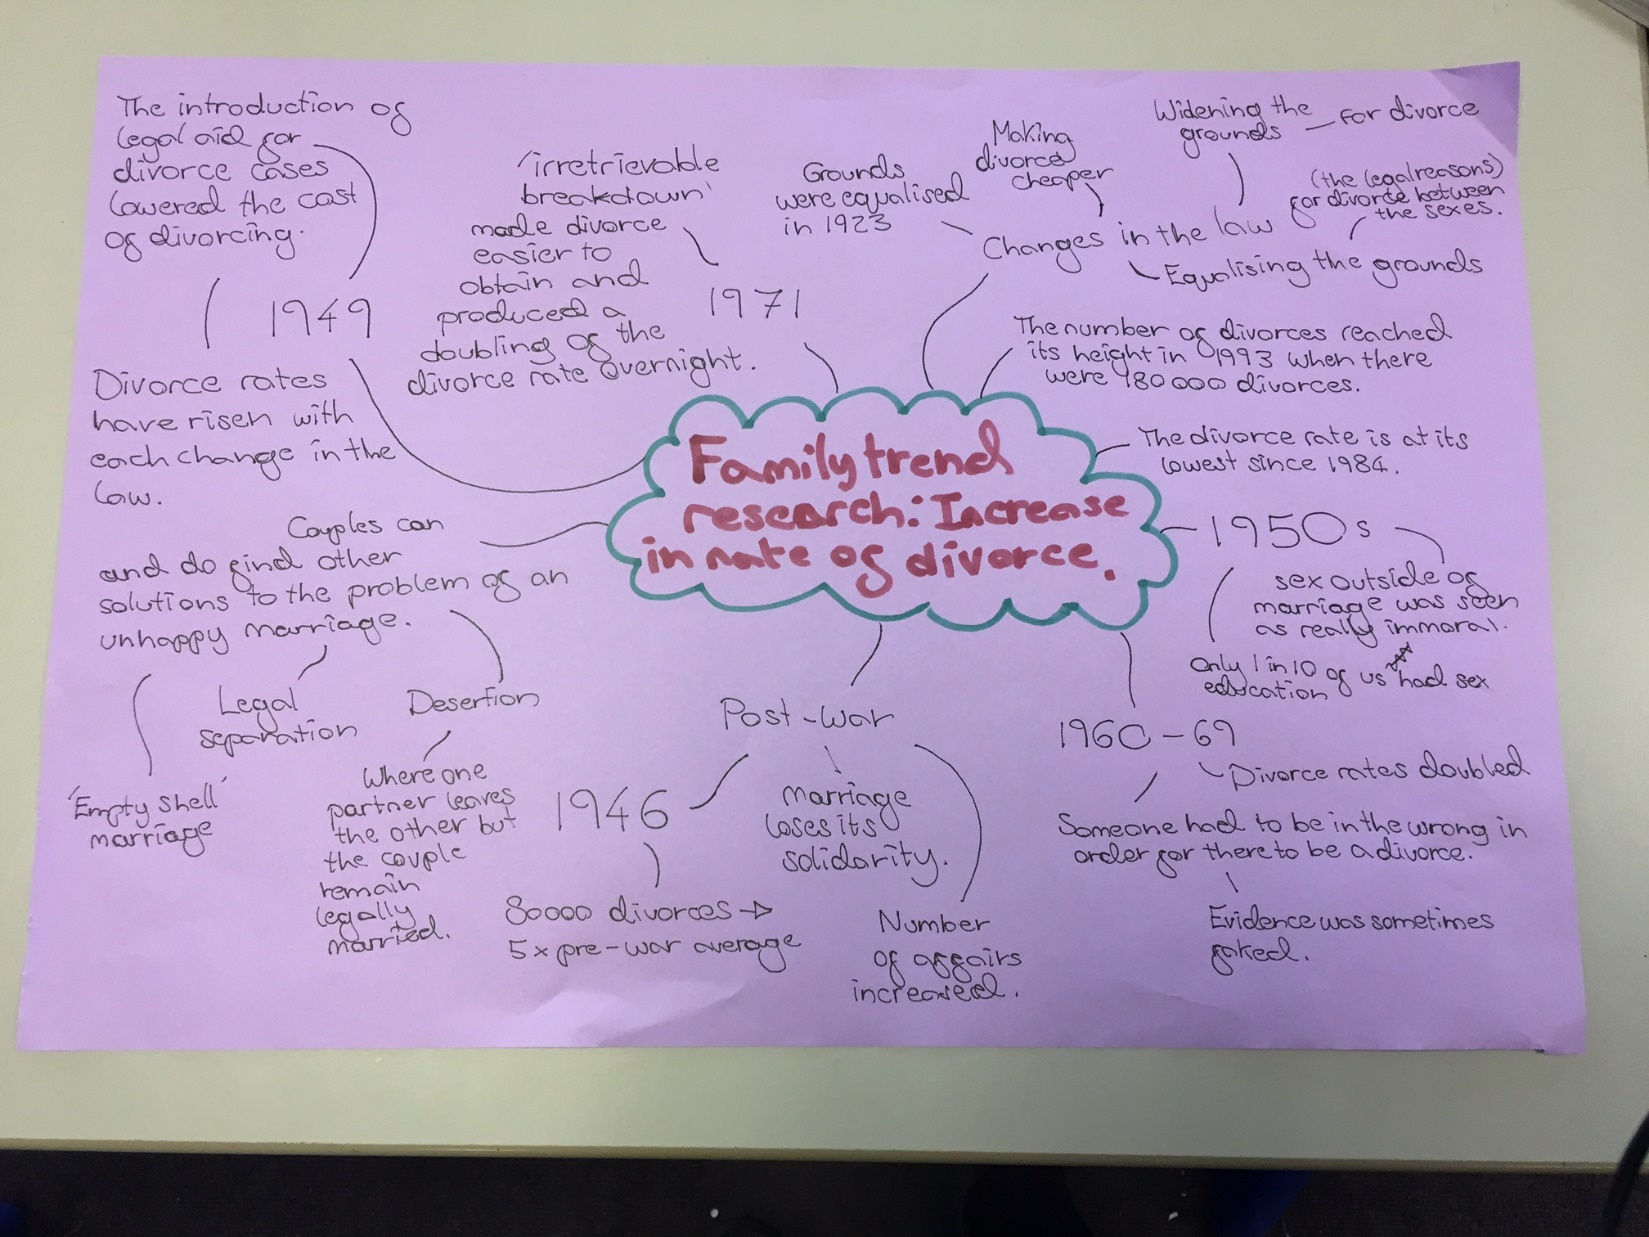 Family trend
research: Increase
in rate of divorce.
The introduction of
legal aid for
divorce cases
lowered the cost
of divorcing.
1949
Divorce rates
have risen with
each change in the
law.
'irretrievable
breakdown'
made divorce
easier to
obtain and
produced a
doubling of the
divorce rate overnight.
1971
Grounds
were equalised
in 1923
Making
divorce
cheaper
Widening the
grounds – for divorce
Changes in the law
(the legal reasons)
for divorce between
the sexes.
Equalising the grounds
The number of divorces reached
its height in 1993 when there
were 180000 divorces.
The divorce rate is at its
lowest since 1984.
1950s
sex outside of
marriage was seen
as really immoral.
Only 1 in 10 of us had sex
education
1960-69
Divorce rates doubled
Someone had to be in the wrong in
order for there to be a divorce.
Evidence was sometimes
faked.
Post-war
1946
80000 divorces →
5x pre-war average
marriage
loses its
solidarity.
Number
of affairs
increased.
Couples can
and do find other
solutions to the problem of an
unhappy marriage.
'Empty shell'
marriage
Legal
separation
Desertion
Where one
partner leaves
the other but
the couple
remain
legally
married.